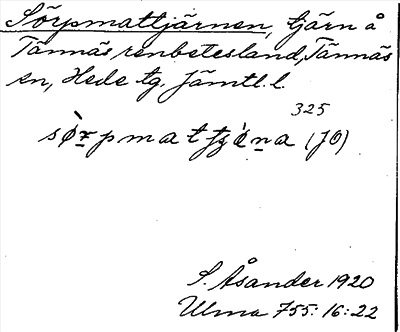 Sörpmattjärnen, tjärn å
Tännäs renbetesland, Tännäs
sn, Hede tg. Jämtl. l.
325
(JO)
S. Åsander 1920
Ulma 755:16:22